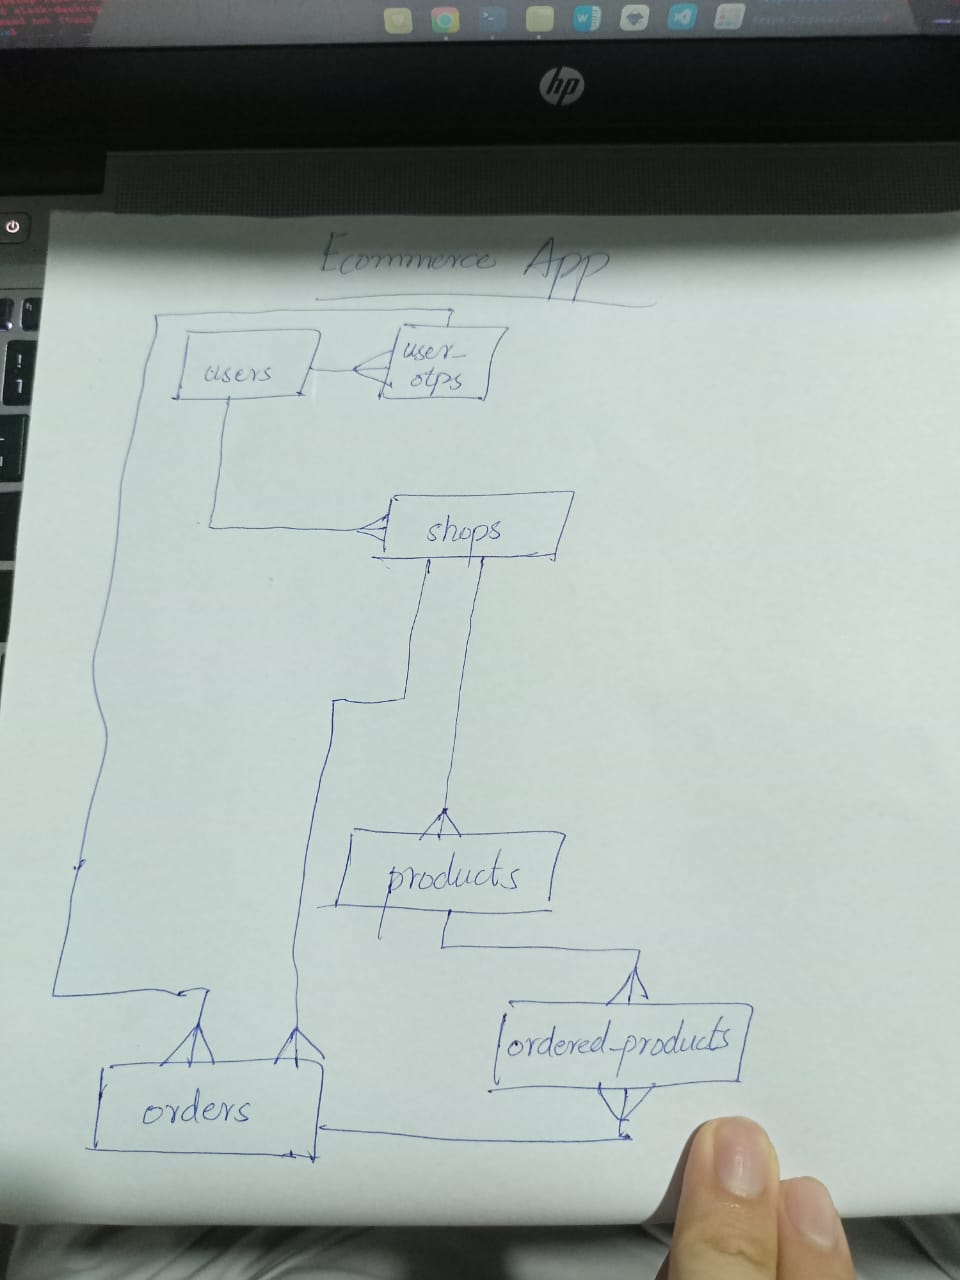 hp
Ecommerce App
users
user_
otps
shops
products
ordered_products
orders